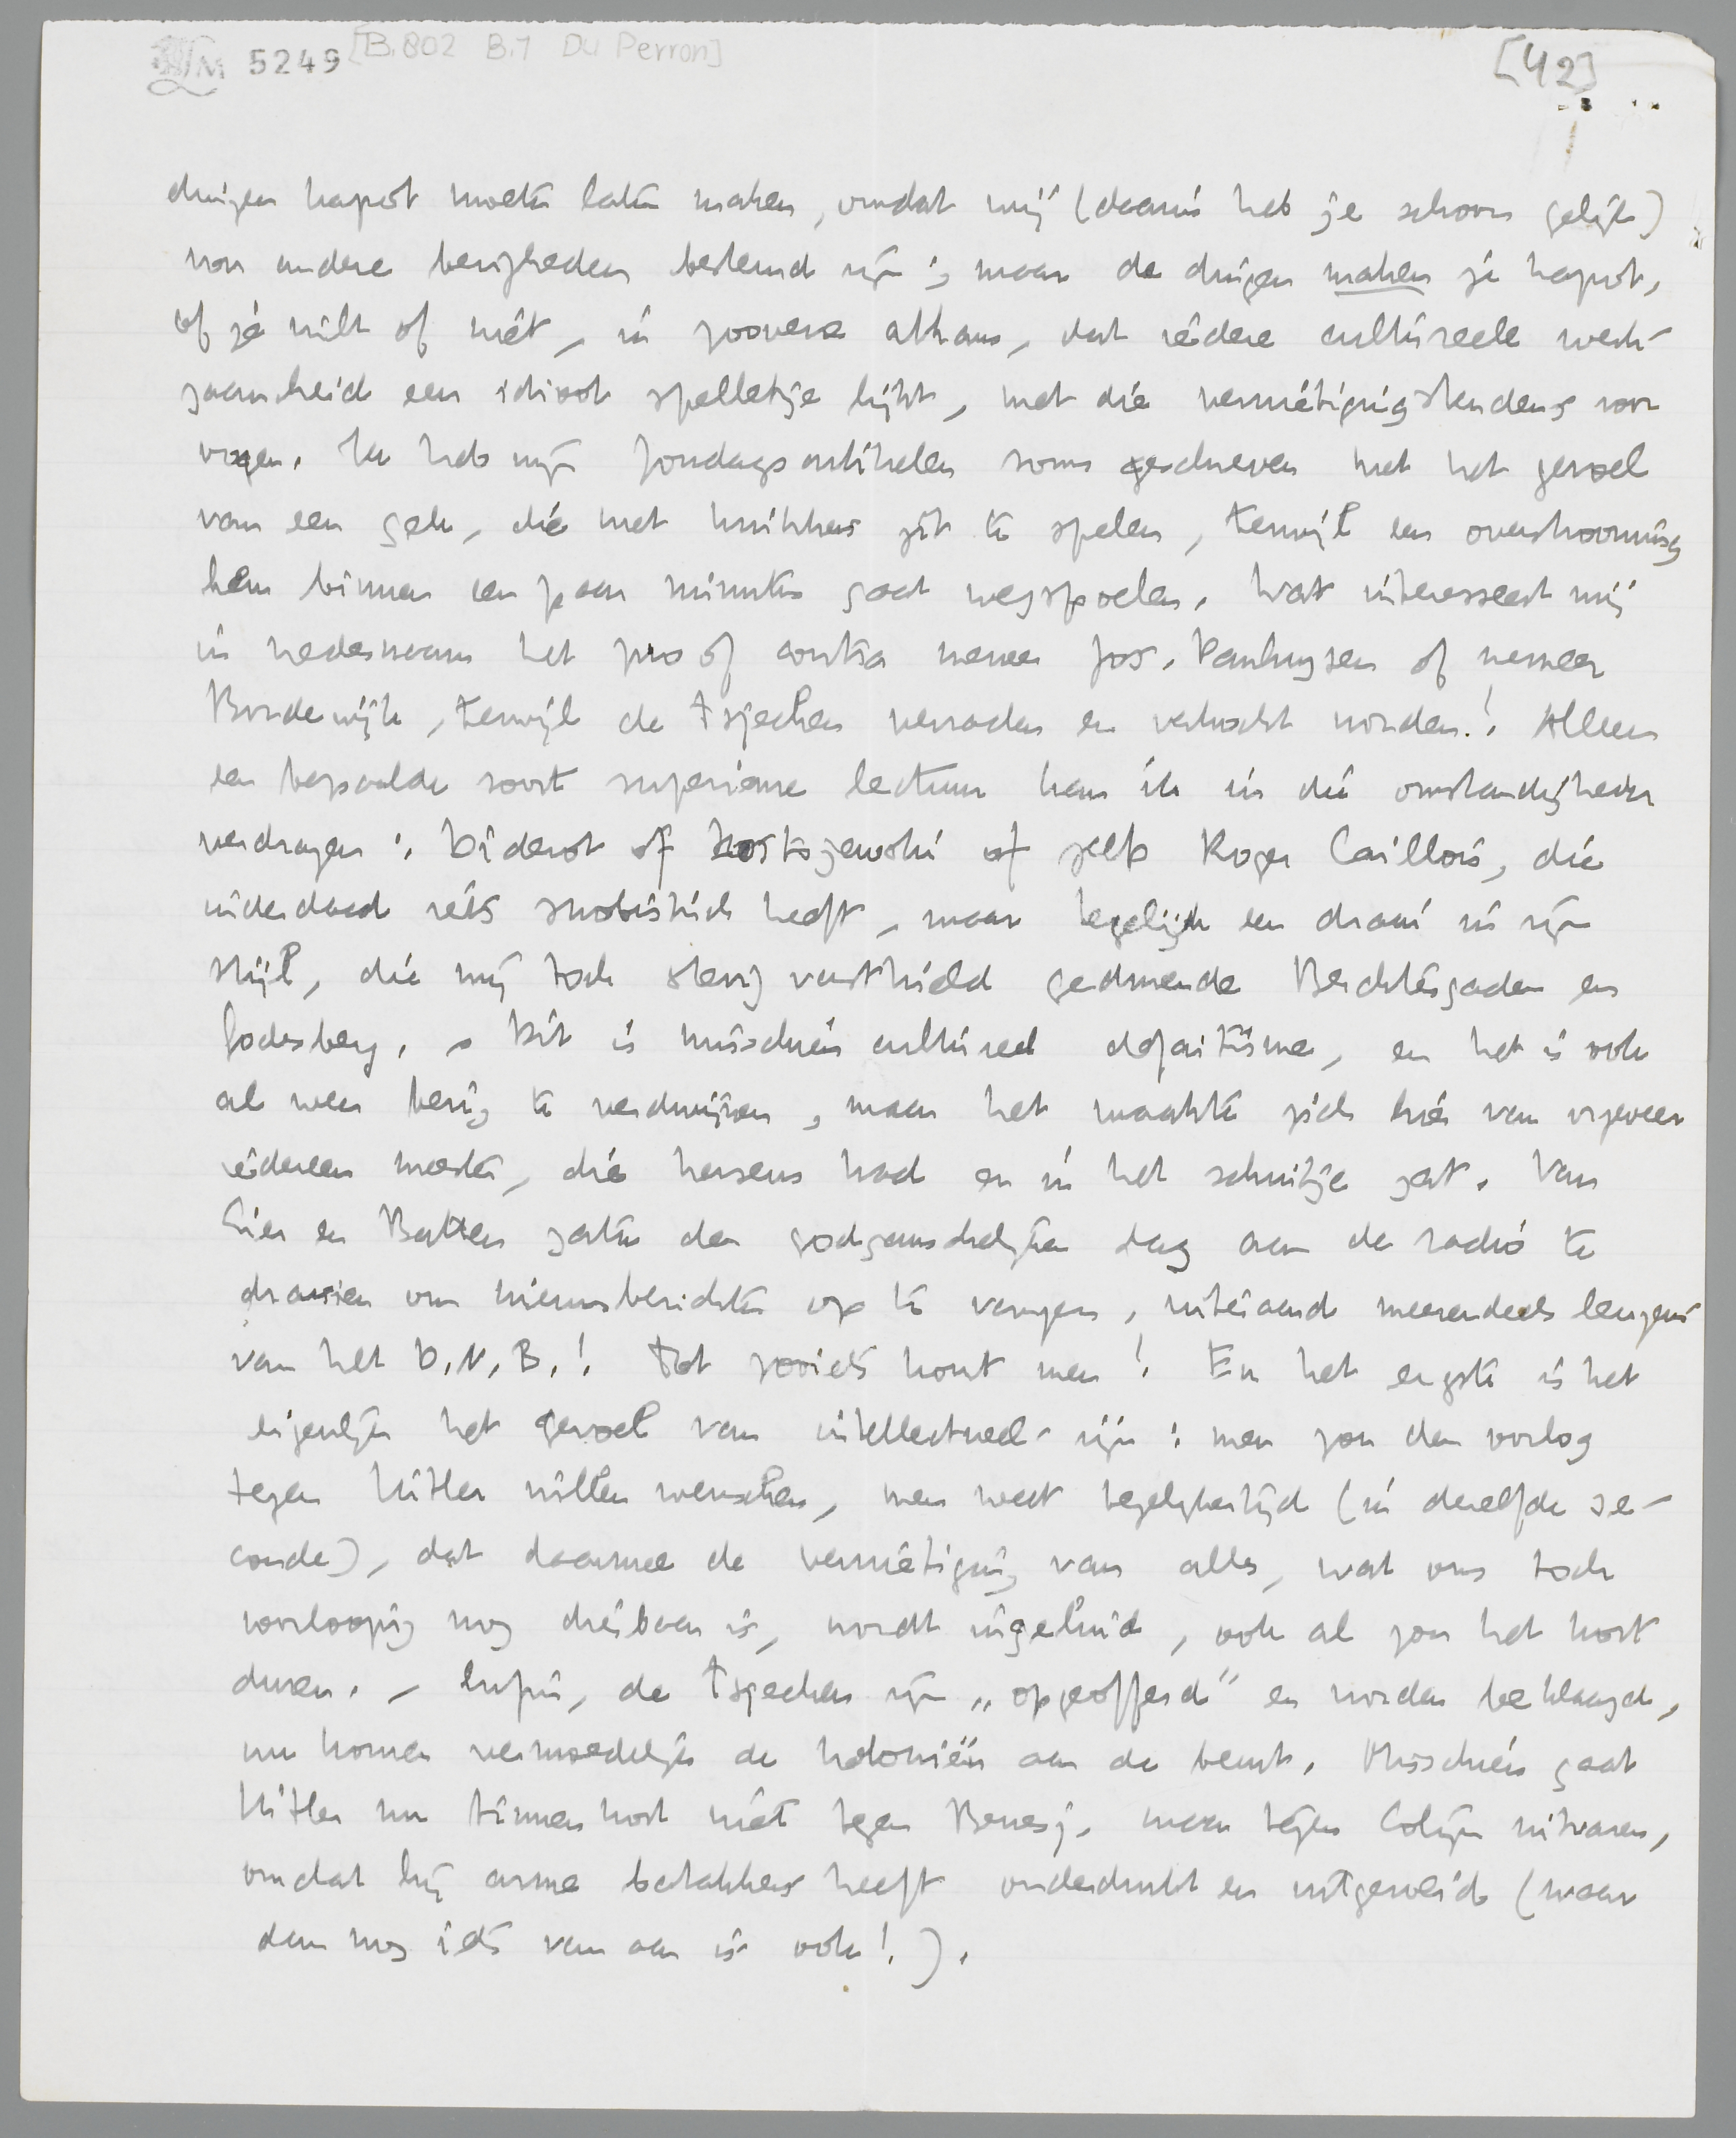 LM 5249 [B.802 B.1 Du Perron]
[42]
dingen kapot moeten laten maken, omdat wij (daarin heb je schoon gelijk)
voor andere bezigheden bestemd zijn; maar de dingen maken je kapot,
of je wilt of niet, in zooverre althans, dat iedere cultureele werk-
zaamheid een idioot spelletje lijkt, met die vernietigingstendens voor
oogen. Ik heb mijn Zondagsartikelen soms geschreven met het gevoel
van een gek, die met knikkers zit te spelen, terwijl een overstrooming
hem binnen een paar minuten gaat wegspoelen. Wat interesseert mij
in vredesnaam het pro of contra meneer Jos. Panhuysen of meneer
Bordewijk, terwijl de Tsjechen verraden en verkocht worden! Alleen
een bepaalde soort superieure lectuur kan ik in die omstandigheden
verdragen: Diderot of Dostojewski of zelfs Roger Caillois, die
inderdaad iets snobistisch heeft, maar tegelijk een draai in zijn
stijl, die mij toch stevig vasthield gedurende Berchtesgaden en
Godesberg. – Dit is misschien cultureel defaitisme, en het is ook
al weer bezig te verdwijnen, maar het maakte zich hier van ongeveer
iedereen meester, die hersens had en in het schuitje zat. Van
Lier en Batten zaten den godganschelijken dag aan de radio te
draaien om nieuwsberichten op te vangen, uiteraard meerendeels leugens
van het D.N.B.! Tot zooiets komt men! En het ergste is het
eigenlijk het gevoel van intellectueel-zijn: men zou den oorlog
tegen Hitler willen wenschen, men weet tegelijkertijd (in dezelfde se-
conde), dat daarmee de vernietiging van alles, wat ons toch
voorloopig nog dierbaar is, wordt ingeluid, ook al zou het kort
duren. – Enfin, de Tsjechen zijn „opgeofferd" en worden beklaagd,
nu komen vermoedelijk de koloniën aan de beurt. Misschien gaat
Hitler nu binnenkort niet tegen Benesj, maar tegen Colijn uitvaren,
omdat hij arme Batakkers heeft onderdrukt en uitgeroeid (waar
dan nog iets van aan is ook!).